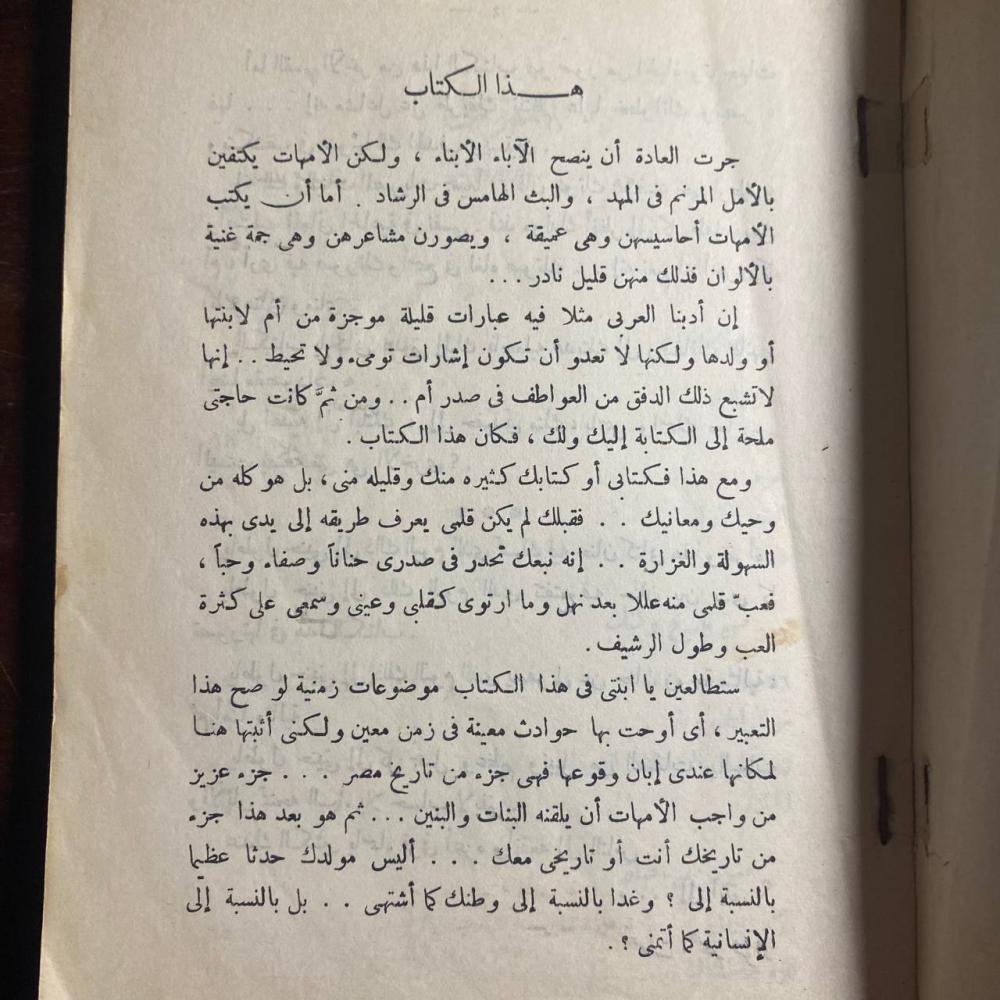 هـــذا الـكتاب
جرت العادة أن ينصح الآباء الأبناء ، ولـكن الأمهات يكتفين
بالأمل المرنم فى المهد ، والبث الهامس فى الرشاد . أما أن يكتب
الأمهات أحاسيسهن وهى عميقة ، ويصورن مشاعرهن وهى جمة غنية
بالألوان فذلك منهن قليل نادر ...
إن أدبنا العربى مثلا فيه عبارات قليلة موجزة من أم لابنتها
أو ولدها ولـكنها لا تعدو أن تـكون إشارات تومىء ولا تحيط .. إنها
لاتشبع ذلك الدفق من العواطف فى صدر أم .. ومن ثمَّ كانت حاجتى
ملحة إلى الـكتابة إليك ولك ، فـكان هذا الـكتاب .
ومع هذا فـكتابى أو كتابك كثيره منك وقليله منى ، بل هو كله من
وحيك ومعانيك . . فقبلك لم يكن قلمى يعرف طريقه إلى يدى بهذه
السهولة والغزارة . . إنه نبعك تحدر فى صدرى حناناً وصفاء وحباً ،
فعبّ قلمى منه عللا بعد نهل وما ارتوى كقلبى وعينى وسمعى على كثرة
العب وطول الرشيف .
ستطالعين يا ابنتى فى هذا الـكتاب موضوعات زمنية لو صح هذا
التعبير ، أى أوحت بها حوادث معينة فى زمن معين ولـكنى أثبتها هنا
لمكانها عندى إبان وقوعها فهى جزء من تاريخ مصر . . . جزء عزيز
من واجب الأمهات أن يلقنه البنات والبنين ... ثم هو بعد هذا جزء
من تاريخك أنت أو تاريخى معك . . . أليس مولدك حدثا عظيما
بالنسبة إلى ؟ وغدا بالنسبة إلى وطنك كما أشتهى . . بل بالنسبة إلى
الإنسانية كما أتمنى ؟ .